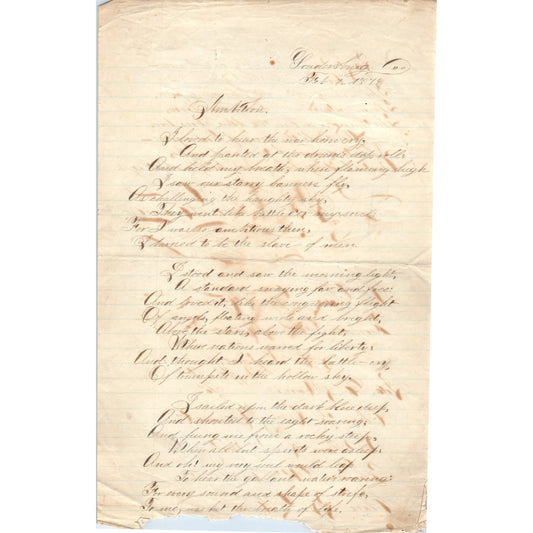 Feb 1878
Ambition.
I loved to hear the war horn cry,
And panted at the drum's deep roll;
And held my breath, when flaming high
I saw our starry banners fly,
As challenging the haughty sky,
They went like battle o'er my soul
For I was so ambitious then,
I burned to be the slave of men.
I stood and saw the morning light,
A standard swaying far and free;
And loved it, like the conquering flight
Of angels, floating wide and bright,
Above the stars, above the fight,
Where nations warred for liberty;
And thought I heard the battle cry
Of trumpets in the hollow sky.
I sailed upon the dark blue deep,
And shouted to the eaglet soaring;
And hung me from a rocky steep,
When all but spirits were asleep;
And oh! my very soul would leap
To hear the gallant waters roaring;
For every sound and shape of strife,
To me, was but the breath of life.